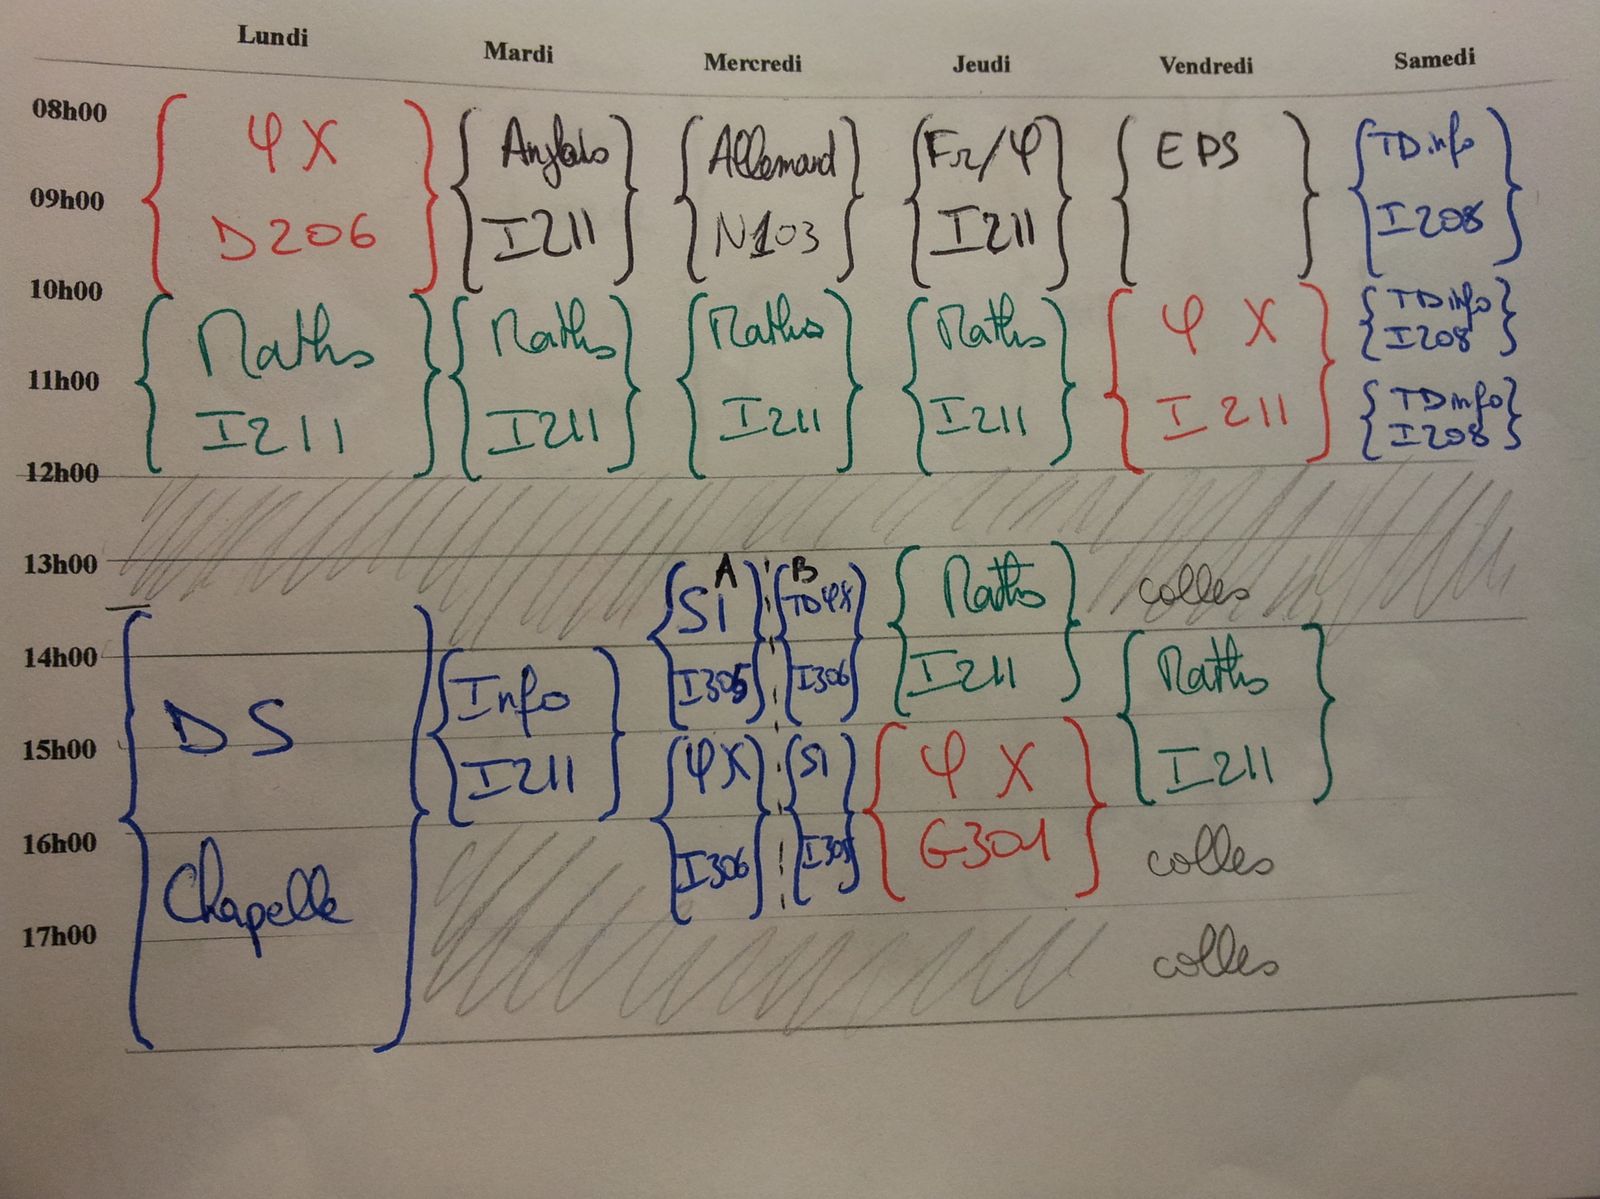 Lundi Mardi Mercredi Jeudi Vendredi Samedi
08h00
φX Anglais Allemand Fr/φ EPS TD info
09h00
D206 I211 N103 I211 I208
10h00
Maths Maths Maths Maths φ X TD info
I208
11h00
I211 I211 I211 I211 I211 TD info
I208
12h00
13h00
A B
SI TDφX Maths colles
14h00
DS Info I305 I306 I211 Maths
15h00
I211 φX SI φ X I211
16h00
Chapelle I306 I305 G301 colles
17h00
colles